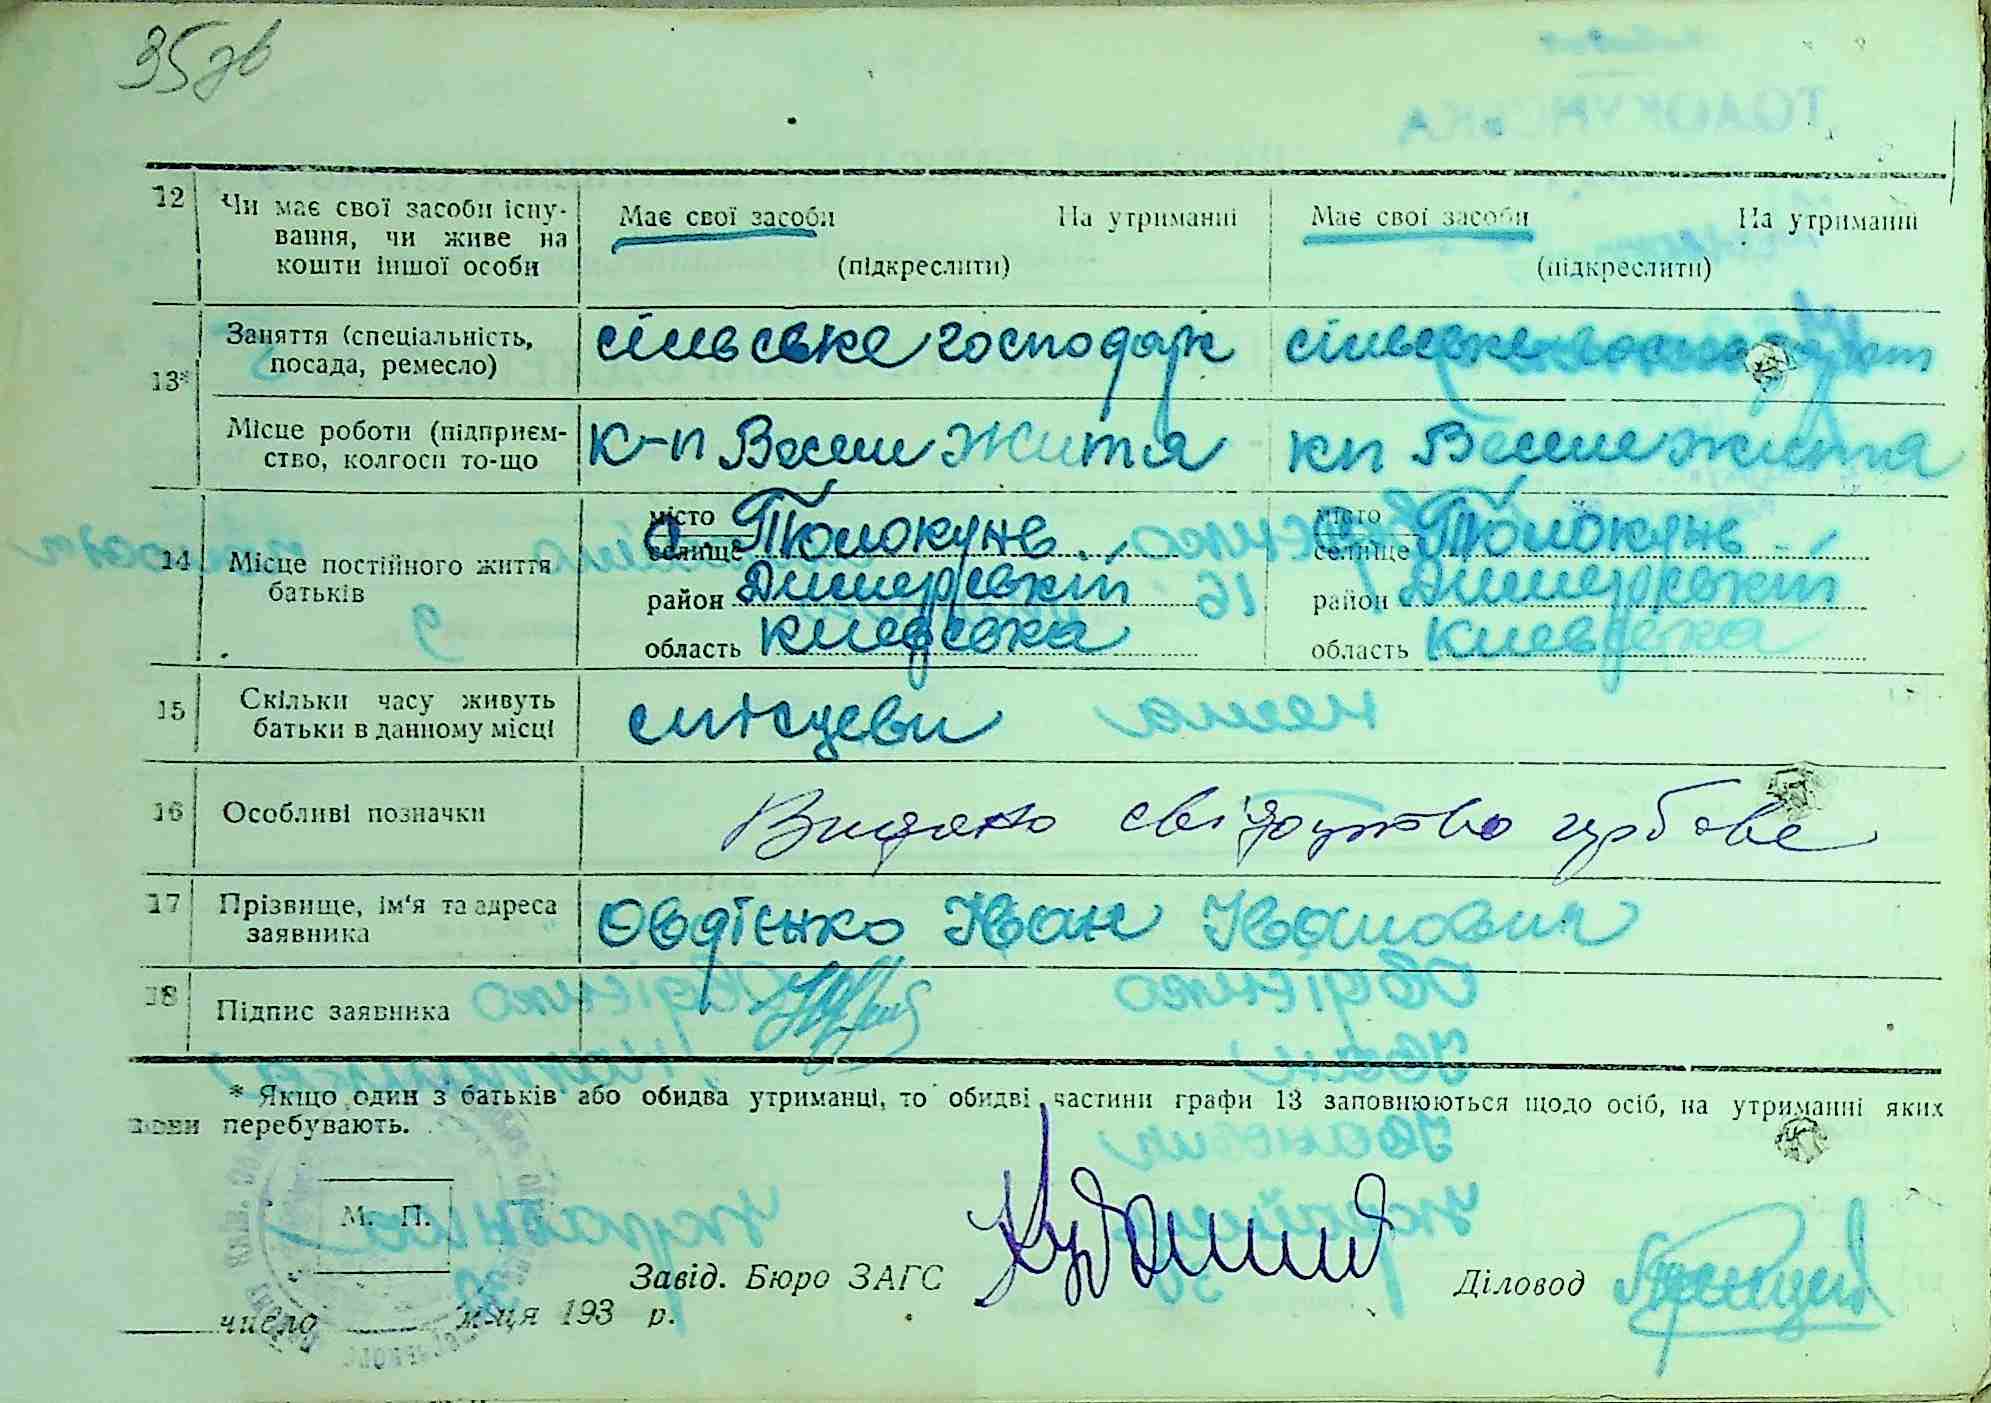 35 зв
12 Чи має свої засоби існу- Має свої засоби На утриманні Має свої засоби На утриманні
вання, чи живе на
кошти іншої особи (підкреслити) (підкреслити)
13* Заняття (спеціальність, сільське господарк сільське
посада, ремесло)
Місце роботи (підприєм- к-п Веселе Життя кп Веселе життя
ство, колгосп то-що
14 Місце постійного життя місто
селище с. Толокунь місто селище Толокунь
батьків район Димерський район Димерський
область Киевска область Киевска
15 Скільки часу живуть місцеви
батьки в данному місці
16 Особливі позначки Видано свідоцтво гербове
17 Прізвище, ім'я та адреса Овдієнко Іван Іванович
заявника
18 Підпис заявника
* Якщо один з батьків або обидва утриманці, то обидві частини графи 13 заповнюються щодо осіб, на утриманні яких
вони перебувають.
М. П.
Завід. Бюро ЗАГС Діловод
число м-ця 193 р.